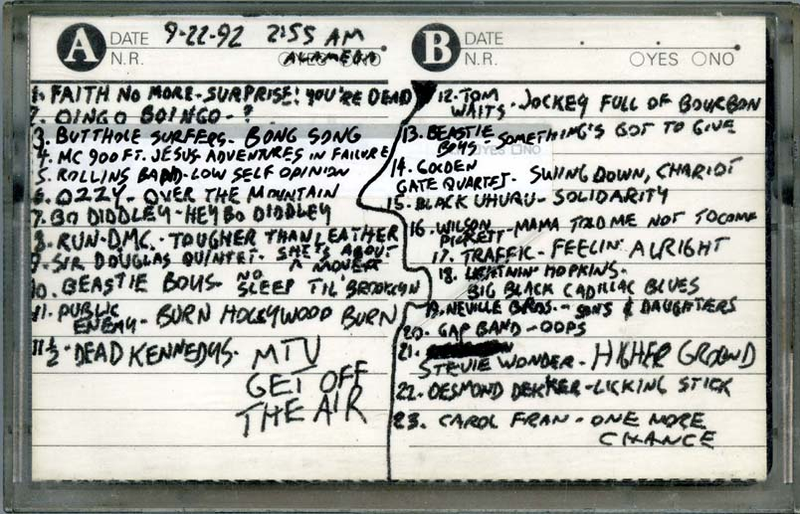 A DATE 9-22-92 2:55 AM
N.R. ALAMEDA
1. FAITH NO MORE - SURPRISE! YOU'RE DEAD
2. OINGO BOINGO - ?
3. BUTTHOLE SURFERS - BONG SONG
4. MC 900 FT. JESUS ADVENTURES IN FAILURE
5. ROLLINS BAND - LOW SELF OPINION
6. OZZY - OVER THE MOUNTAIN
7. BO DIDDLEY - HEY BO DIDDLEY
8. RUN-DMC. - TOUGHER THAN LEATHER
9. SIR DOUGLAS QUINTET - SHE'S ABOUT
A MOVER
10. BEASTIE BOYS - NO
SLEEP TIL' BROOKLYN
11. PUBLIC
ENEMY - BURN HOLLYWOOD BURN
11 1/2 - DEAD KENNEDYS - MTV
GET OFF
THE AIR
B DATE
N.R. YES NO
12. TOM
WAITS - JOCKEY FULL OF BOURBON
13. BEASTIE
BOYS SOMETHING'S GOT TO GIVE
YES NO
14. GOLDEN
GATE QUARTET - SWING DOWN, CHARIOT
15. BLACK UHURU - SOLIDARITY
16. WILSON
PICKETT - MAMA TOLD ME NOT TO COME
17. TRAFFIC - FEELIN' ALRIGHT
18. LIGHTNIN' HOPKINS -
BIG BLACK CADILLAC BLUES
19. NEVILLE BROS. - SONS & DAUGHTERS
20. GAP BAND - OOPS
21.
STEVIE WONDER - HIGHER GROUND
22. DESMOND DEKKER - LICKING STICK
23. CAROL FRAN - ONE MORE
CHANCE